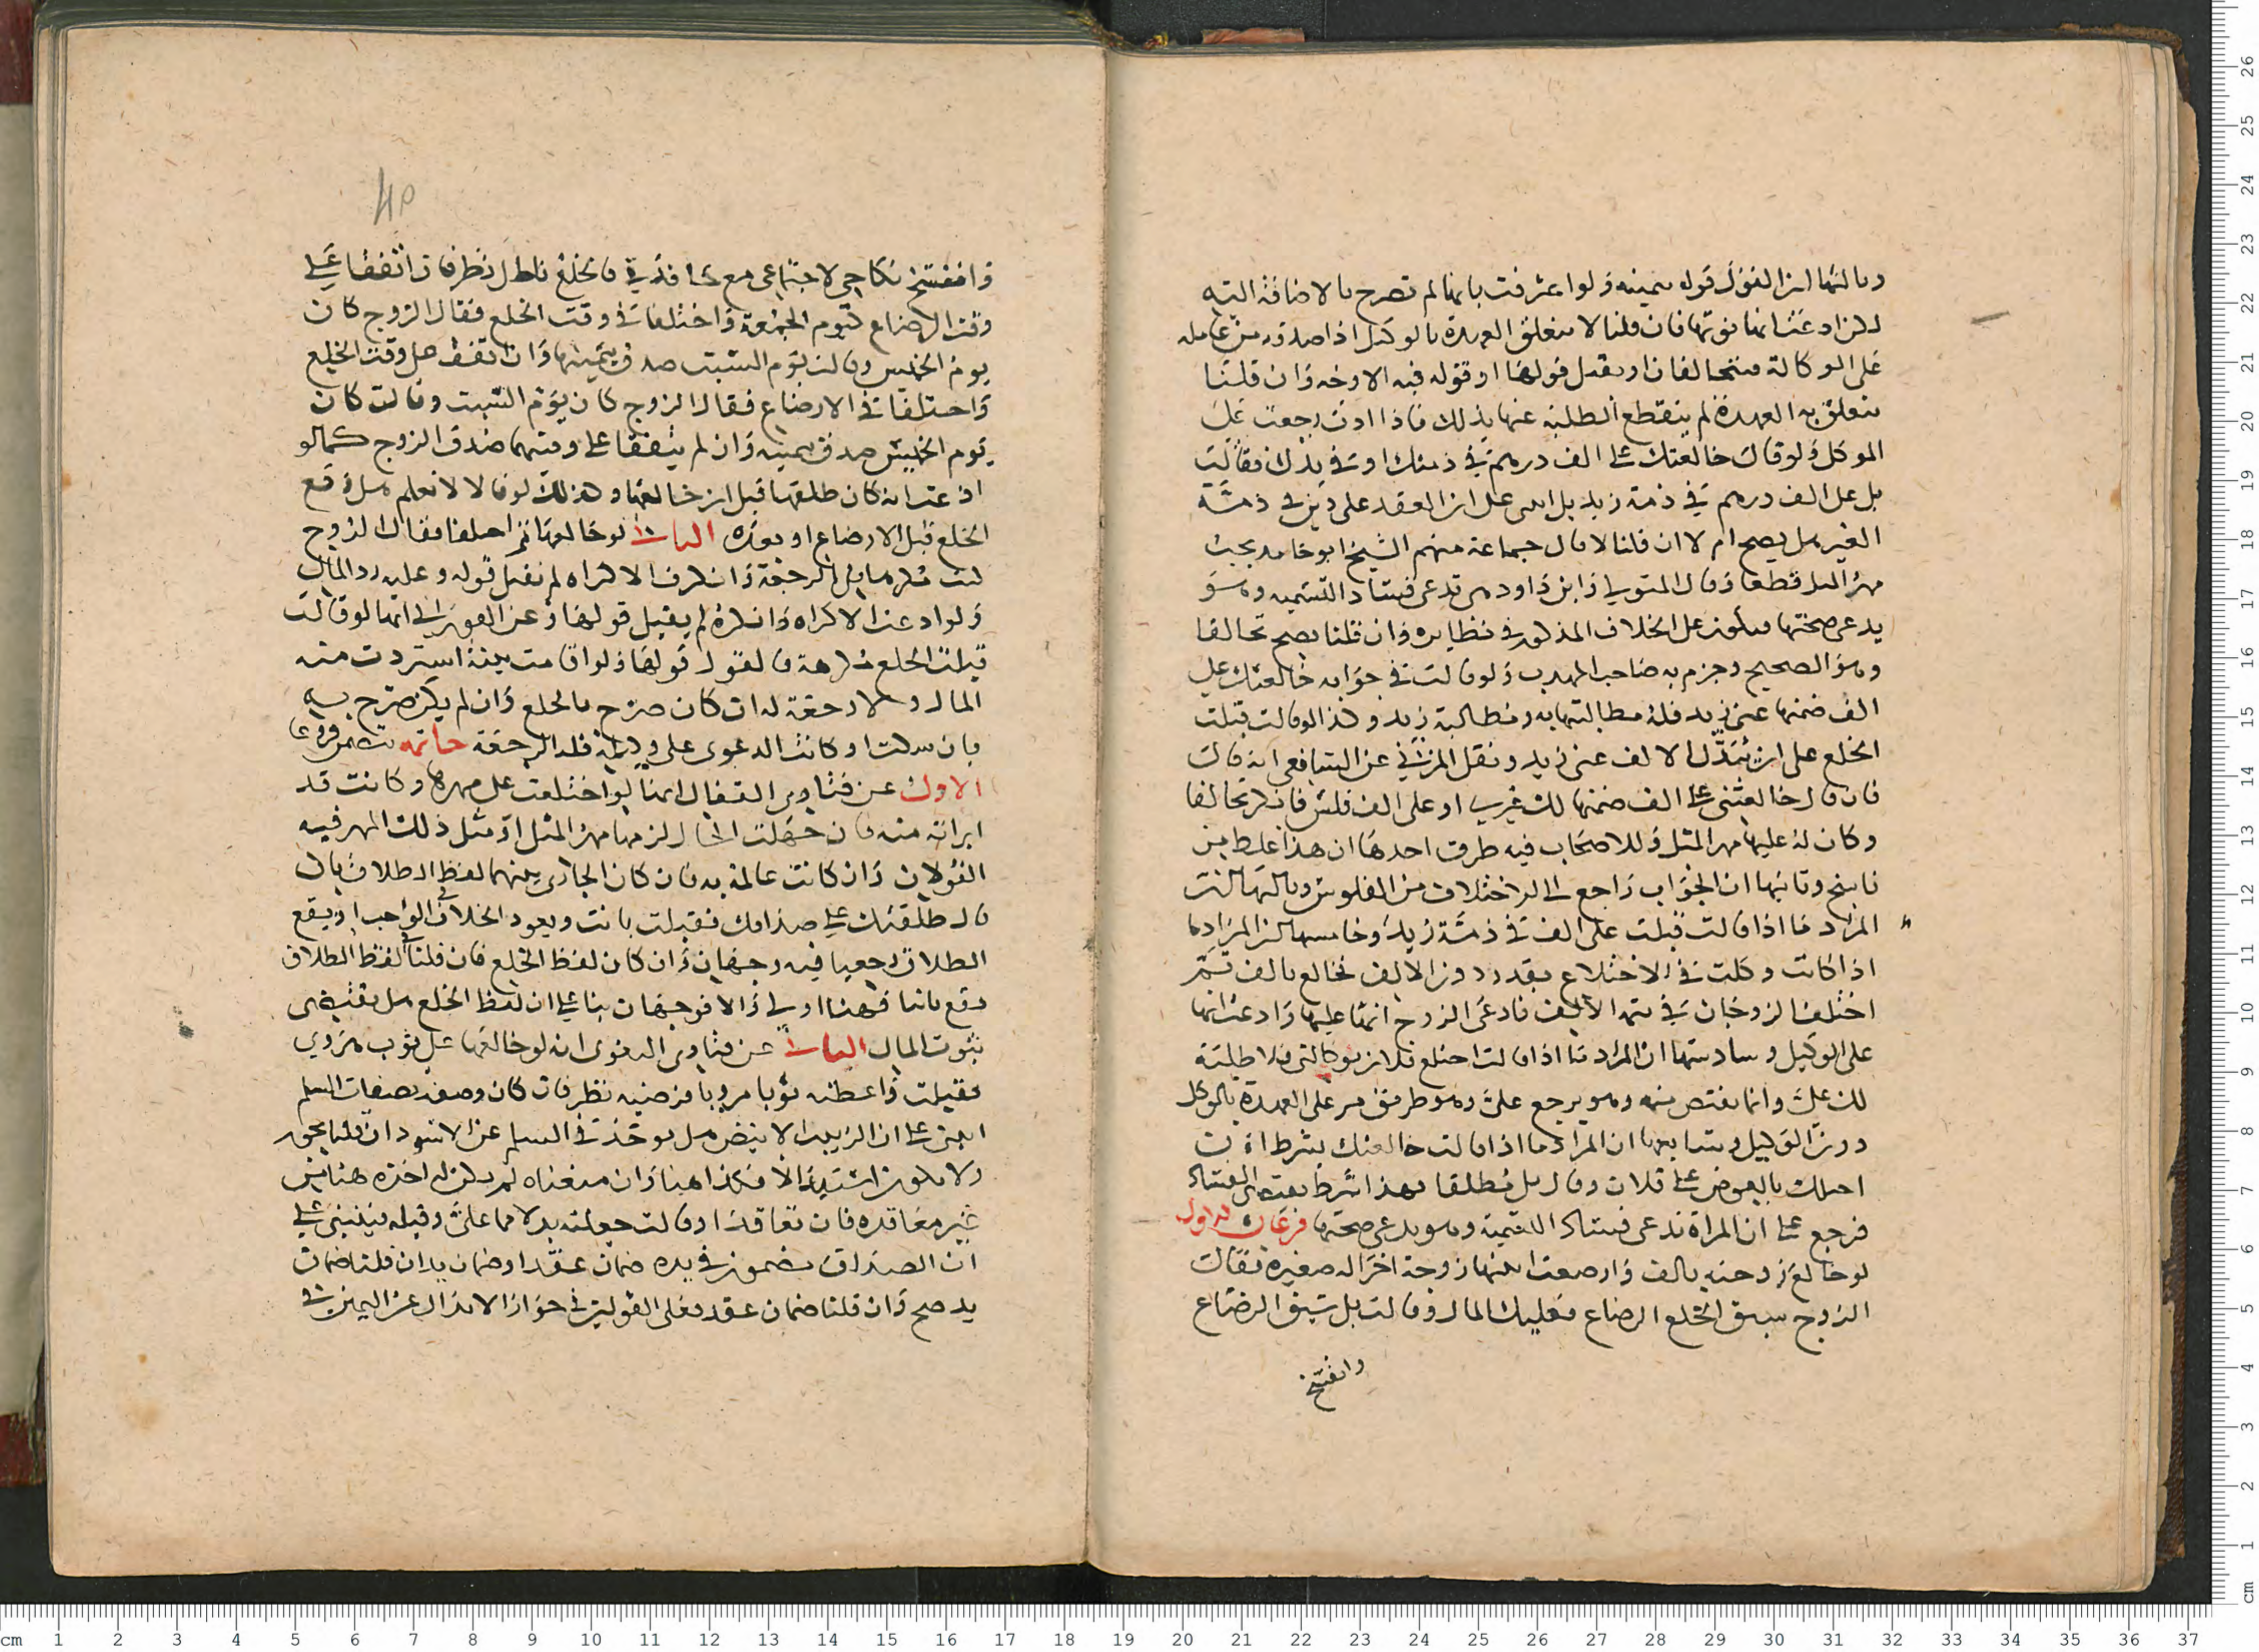 وثالثها ان القول قوله بيمينه ولو اعترفت بانها لم تصرح بالاضافة اليه
لكن ادعت انها نوتها فان قلنا لا يتعلق العهدة بالوكيل اذا صدقه من عامله
على الوكالة فيتحالفان او يقبل قولها او قوله فيه الاوجه وان قلنا
يتعلق به العهدة لم ينقطع الطلبة عنها بذلك فاذا ادت رجعت على
الموكل ولو قال خالعتك على الف درهم في ذمتك او في يدك فقالت
بل على الف درهم في ذمة زيد بل على ان العقد على دين في ذمة
الغير هل يصح ام لا ان قلنا لا قال جماعة منهم الشيخ ابو حامد يجب
مهر المثل قطعا وقال المتولي وابن داود هي تدعي فساد التسمية وهو
يدعي صحتها فيكون على الخلاف المذكور في نظايره وان قلنا يصح تحالفا
وهو الصحيح وجزم به صاحب المهذب ولو قالت في جوابه خالعتك على
الف ضمنها عني زيد فله مطالبتها به ومطالبة زيد وكذا لو قالت قبلت
الخلع على ان يبذل الالف عني زيد ونقل المزني عن الشافعي انه قال
فان قال خالعتني على الف ضمنها لك غيري او على الف فلس فانكر تحالفا
وكان له عليها مهر المثل وللاصحاب فيه طرق احدها ان هذا غلط من
ناسخ وثانيها ان الجواب راجع الى الاختلاف من الفلوس وثالثها ان
المراد ما اذا قالت قبلت على الف في ذمة زيد وخامسها ان المراد ما
اذا كانت وكلت في الاختلاع بقدر دون الالف فخالع بالف ثم
اختلف الزوجان في تتمة الالف فادعى الزوج انها عليها وادعت انها
على الوكيل وسادستها ان المراد ما اذا قالت اختلع فلان بوكالتي فلا طلبة
لك علي وانما تختص به وهو يرجع علي وهو طريق من على العهدة بالموكل
دون الوكيل وسابعها ان المراد ما اذا قالت خالعتك بشرط ان
احيلك بالعوض على فلان وقال بل مطلقا وهذا شرط يقتضي الفساد
فرجع على ان المراة تدعي فساد التسمية وهو يدعي صحتها فرعان الاول
لو خالع زوجته بالف وارضعت ابنتها زوجة اخرى له صغيرة فقالت
الزوج سبق الخلع الرضاع فعليك المال وقالت بل سبق الرضاع
وانفسخ
وانفسخ نكاحي لاجتماعي مع في فالخلع باطل نظر فان اتفقا على
وقت الرضاع كيوم الجمعة واختلفا في وقت الخلع فقال الزوج كان
يوم الخميس وقالت يوم السبت صدق بيمينها وان اتفقا على وقت الخلع
واختلفا في الارضاع فقال الزوج كان يوم السبت وقالت كان
يوم الخميس صدق بيمينه وان لم يتفقا على وقتهما صدق الزوج كما لو
ادعت انه كان طلقها قبل ان خالعها وكذلك لو قالا لا نعلم هل وقع
الخلع قبل الارضاع او بعده الثاني لو خالعها ثم اختلفا فقال الزوج
كنت مكرها فلي الرجعة وانكرت الاكراه لم نقبل قوله وعليه رد المال
ولو ادعت الاكراه وانكره لم يقبل قولها وعن الفوراني انها لو قالت
قبلت الخلع مكرهة فالقول قولها ولو اقامت بينة استردت منه
المال ولا رجعة له ان كان صرح بالخلع وان لم يكن صرح به
بان سكت او كانت الدعوى على وليه فله الرجعة خاتمة تتضمن فروعا
الاول عن فتاوى القفال انها لو اختلعت على مهرها وكانت قد
ابراته منه فان جهلت الحال لزمها مهر المثل او مثل ذلك المهر فيه
القولان وان كانت عالمة به فان كان الجاري بينهما لفظ الطلاق بان
قال طلقتك على صداقك فقبلت بانت ويعود الخلاف في الواجب او يقع
الطلاق رجعيا فيه وجهان وان كان لفظ الخلع فان قلنا لفظ الطلاق
يقع بائنا فهذا اولى والا فوجهان بنا على ان لفظ الخلع هل يقتضي
ثبوت المال الثاني عن فتاوى البغوي انه لو خالعها على ثوب هروي
فقبلت واعطته ثوبا مرويا فرضيه نظر فان كان وصفه بصفات السلم
انبنى على ان الزبيب الابيض هل يوخذ في السلم عن الاسود ان قلنا يجوز
ولا يكون استبدالا فكذا هنا وان منعناه لم يكن له اخذه هنا من
غير معاقدة فان تعاقدا وقالت جعلته بدلا مما علي وقبله فينبني على
ان الصداق مضمون في يده ضمان عقد او ضمان يد ان قلنا ضمان
يد صح وان قلنا ضمان عقد فعلى القولين في جواز الابدال عن الثمن في